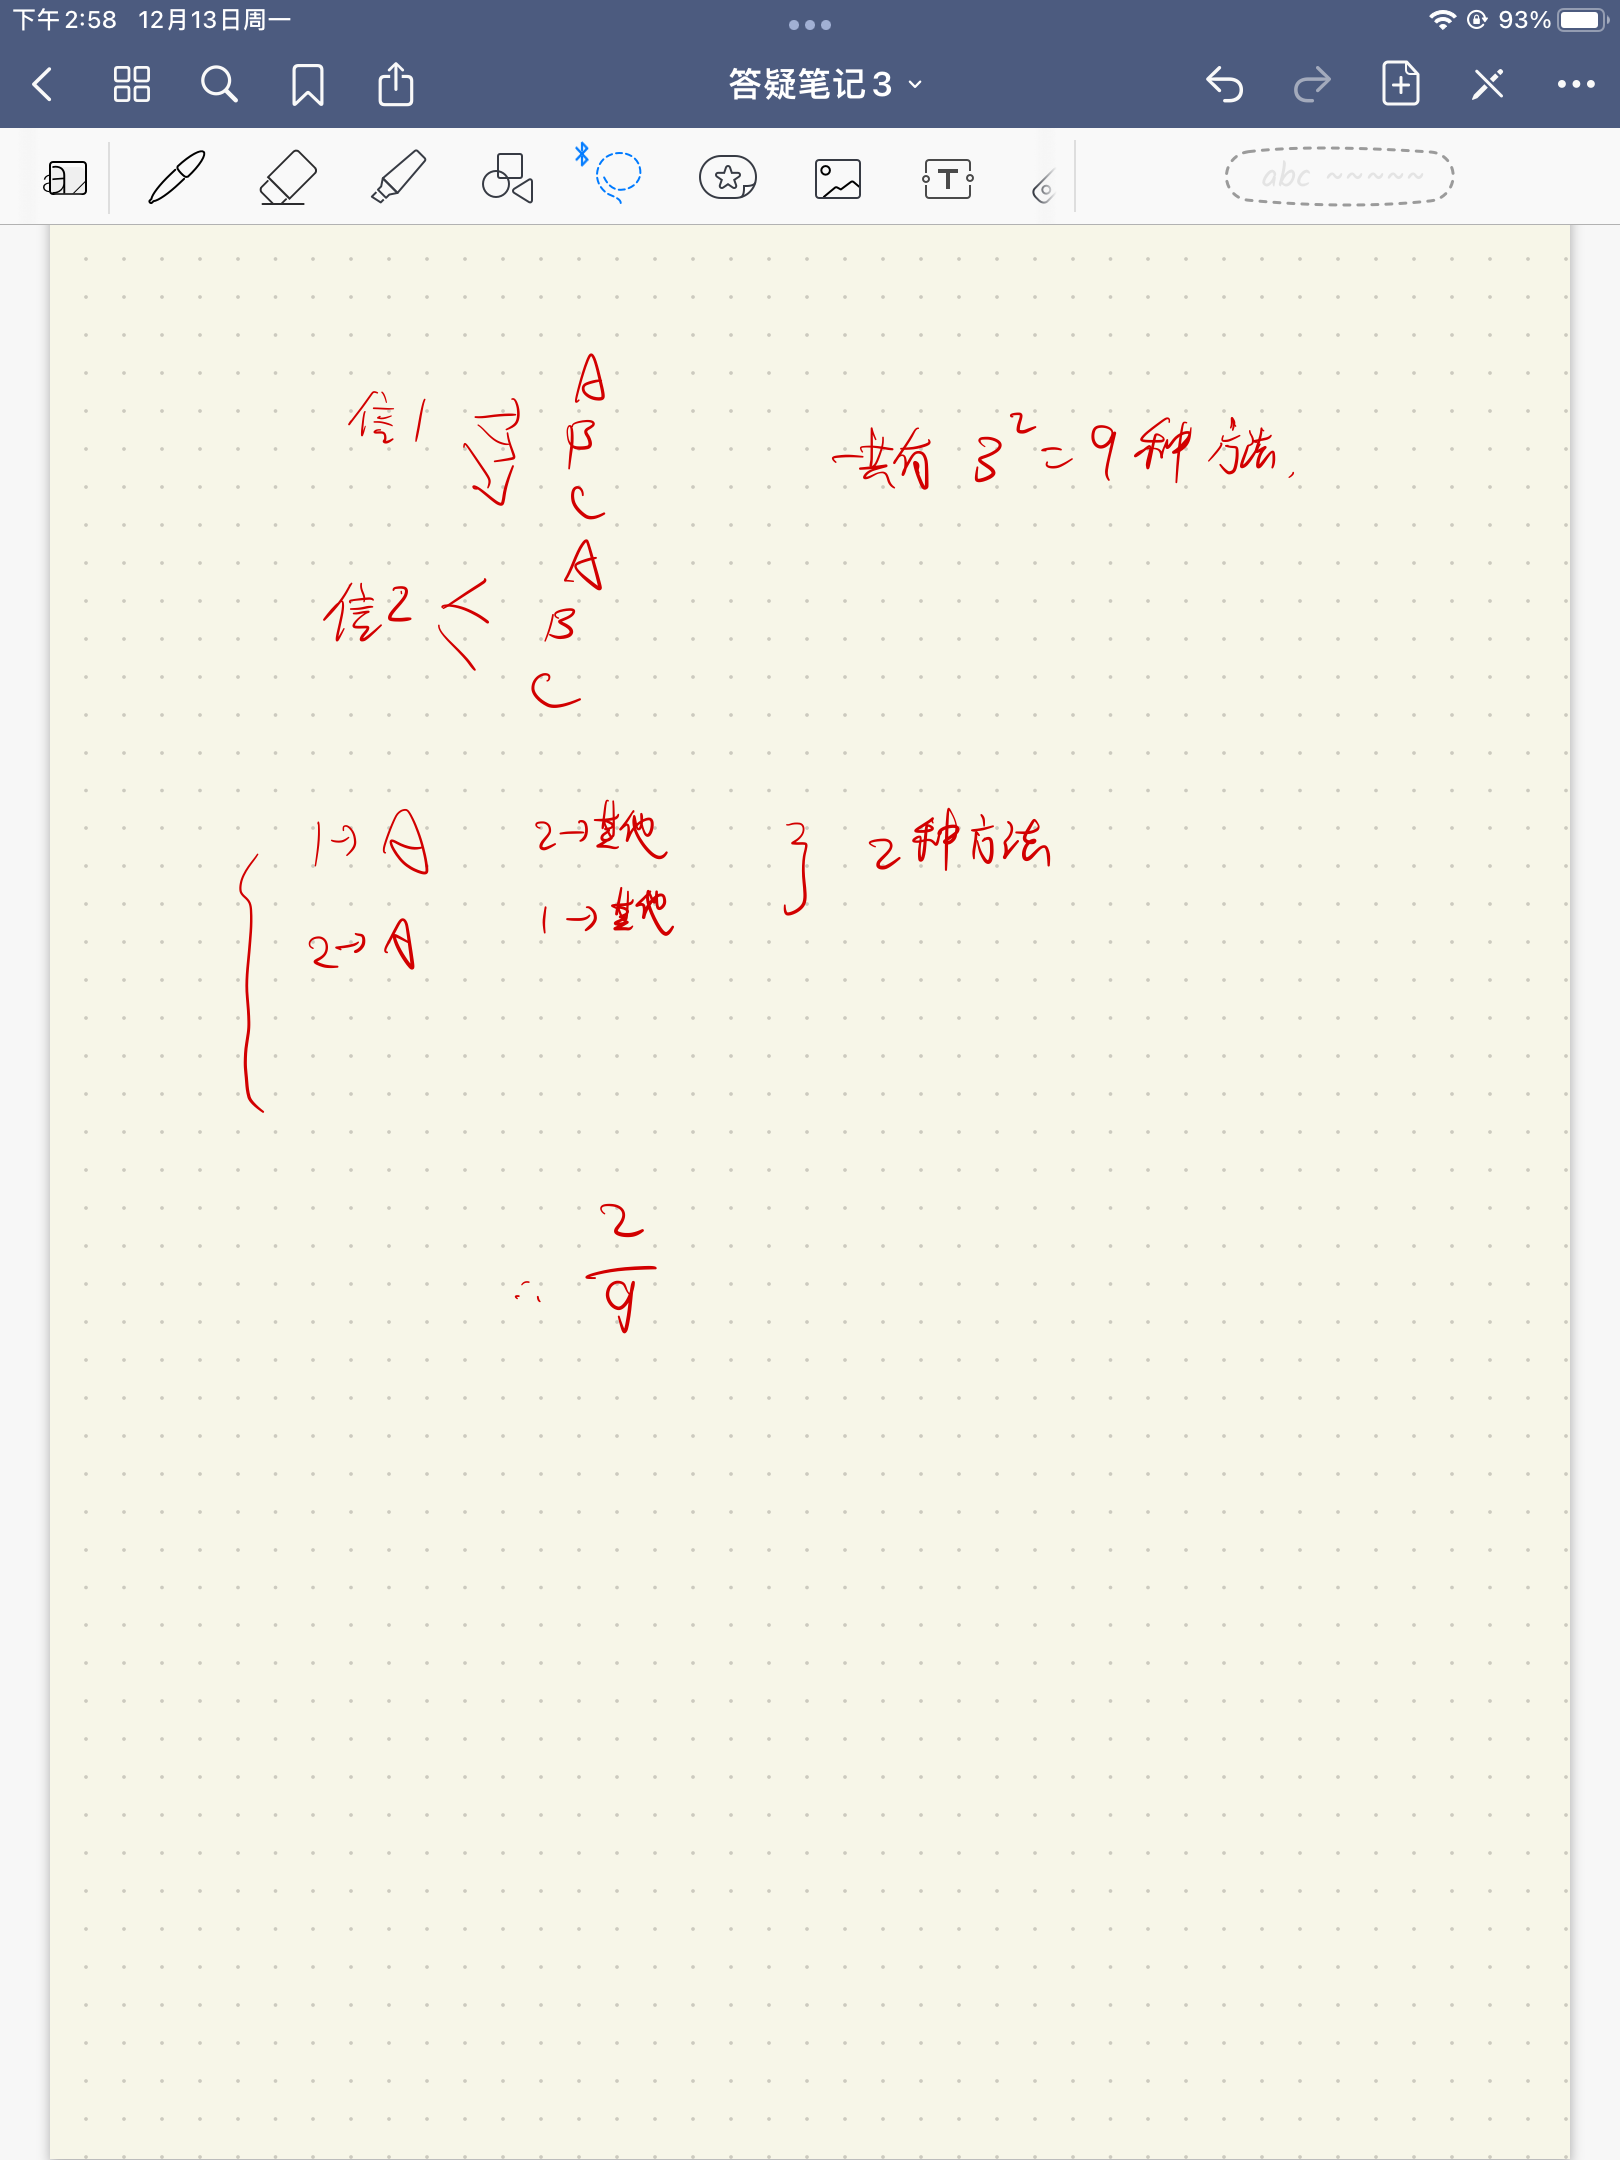 下午2:58 12月13日周一
93%
答疑笔记3
T
abc ~~~~~
信1 → A
B
C
一共有 3²=9种方法.
信2 A
B
C
1→A 2→其他
2→A 1→其他
} 2种方法
∴ 2/9